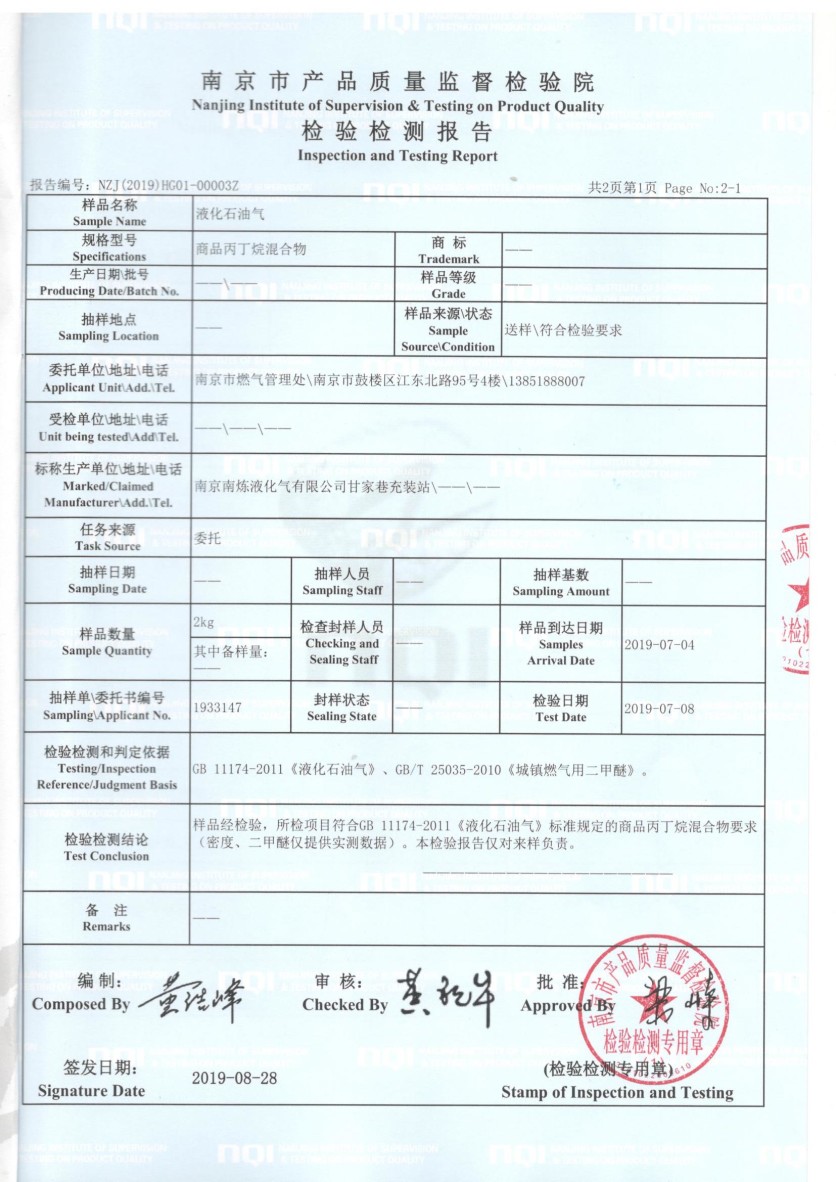 南京市产品质量监督检验院
Nanjing Institute of Supervision & Testing on Product Quality
检验检测报告
Inspection and Testing Report
报告编号：NZJ(2019)HG01-00003Z
共2页第1页 Page No:2-1
样品名称
Sample Name
液化石油气
规格型号
Specifications
商品丙丁烷混合物
商 标
Trademark
——
生产日期\批号
Producing Date/Batch No.
——\——
样品等级
Grade
——
抽样地点
Sampling Location
——
样品来源\状态
Sample
Source\Condition
送样\符合检验要求
委托单位\地址\电话
Applicant Unit\Add.\Tel.
南京市燃气管理处\南京市鼓楼区江东北路95号4楼\13851888007
受检单位\地址\电话
Unit being tested\Add\Tel.
——\——\——
标称生产单位\地址\电话
Marked/Claimed
Manufacturer\Add.\Tel.
南京南炼液化气有限公司甘家巷充装站\——\——
任务来源
Task Source
委托
抽样日期
Sampling Date
——
抽样人员
Sampling Staff
——
抽样基数
Sampling Amount
——
样品数量
Sample Quantity
2kg
其中备样量：
——
检查封样人员
Checking and
Sealing Staff
——
样品到达日期
Samples
Arrival Date
2019-07-04
抽样单\委托书编号
Sampling\Applicant No.
1933147
封样状态
Sealing State
——
检验日期
Test Date
2019-07-08
检验检测和判定依据
Testing/Inspection
Reference/Judgment Basis
GB 11174-2011《液化石油气》、GB/T 25035-2010《城镇燃气用二甲醚》。
检验检测结论
Test Conclusion
样品经检验，所检项目符合GB 11174-2011《液化石油气》标准规定的商品丙丁烷混合物要求
（密度、二甲醚仅提供实测数据）。本检验报告仅对来样负责。
备 注
Remarks
——
编 制：
Composed By
审 核：
Checked By
批 准：
Approved By
南京市产品质量监督检验院
检验检测专用章
签发日期：
Signature Date
2019-08-28
(检验检测专用章)
Stamp of Inspection and Testing
nqi